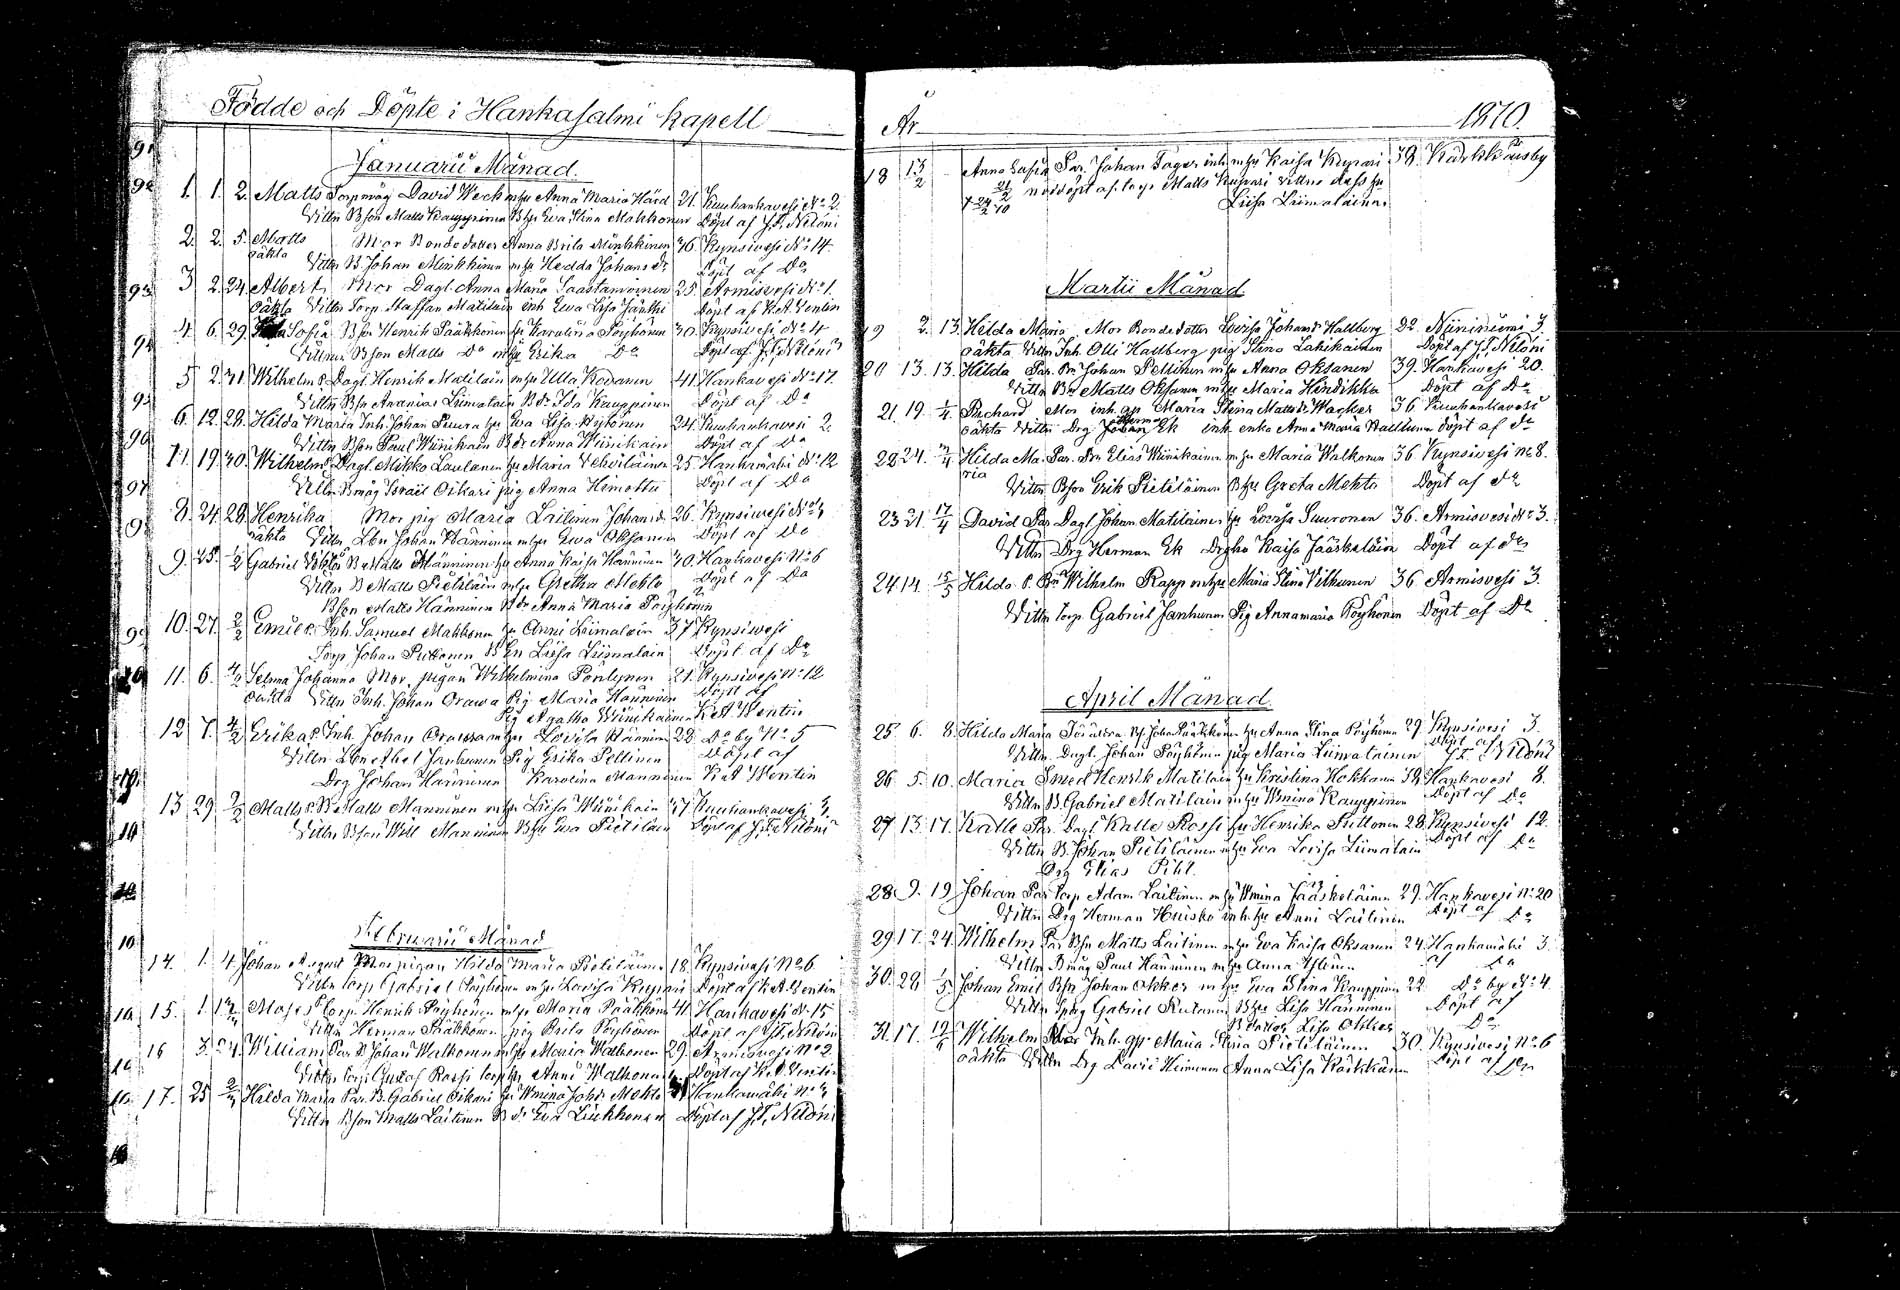 Födde och Döpte i Hankasalmi kapell
Januarii Månad.
1. 1. 2. Matts Torpmåg David Weck m hu Anna Maria Hård 21. Kuuhankavesi No 2
Vittn Bson Matts Kauppinen B hu Eva Stina Makkonen Döpt af J. F. Niloni
2. 2. 5. Matts Mor Bondedotter Anna Brita Minkkinen 36. Kynsivesi No 14.
oäkta Vittn B. Johan Minkkinen m hu Hedda Johans dr Döpt af Do
3 2. 24. Albert Mor Dagl. Anna Maria Saastamoinen 25. Armisvesi No 1.
oäkta Vittn Torp. Staffan Matilain inh Ewa Lisa Janthi Döpt af K. A. Ventin
4. 6. 29. Sofia Bson Henrik Pääkkönen hu Karolina Pöyhönen 30. Kynsivesi No 4
Vittnen Bson Matts Do m hu Erika Do Döpt af J. F. Niloni
5 2. 31. Wilhelm P. Dagl. Henrik Matilain m hu Ulla Kovanen 41. Hankavesi No 17.
Vittn Bsn Ananias Liimatain B dr Ida Kauppinen Döpt af Do
6. 12. 28. Hilda Maria Inh. Johan Puura hu Eva Lisa Kytönen 24. Kuuhankavesi 2
Vittn Bson Paul Wiinikain B dr Anna Wiinikain Döpt af Do
7. 19. 30. Wilhelm P. Dagl. Mikko Laulanen hu Maria Vehviläinen 25. Hankamäki No 12
Vittn Bmåg Israël Oikari pig Anna Himottu Döpt af Do
8. 24. 28. Henrika Mor pig Maria Laitinen Johans dr 26. Kynsivesi No
oäkta Vittn Lbn Johan Hänninen m hu Ewa Oksanen Döpt af Do
9. 25. 1/2 Gabriel Viktor B Matts Hänninen hu Anna Kaisa Hänninen 40. Hankavesi No 6
Vittn B Matts Pietiläin m hu Gretha Mehto Döpt af Do
Bson Matts Hänninen B dr Anna Maria Pöyhönen
10. 27. 2/2 Emil P. Inh. Samuel Makkonen hu Anni Liimatain 37. Kynsivesi
Torp. Johan Puttonen B En Liisa Liimatain Döpt af Do
11. 6. 4/2 Selma Johanna Mor. pigan Wilhelmina Pänlynen 21. Kynsivesi No 12
oäkta Vittn Inh. Johan Orawa Pig Maria Hänninen Döpt af
Pig Agatha Wiinikainen K A Wentin
12 7. 4/2 Erika P. Inh. Johan Orawa m hu Lovisa Hänninen 22. Do by No 5
Vittn Lbn Abel Janhunen Pig Erika Pellinen Döpt af
Drg Johan Hänninen Karolina Manninen K A Wentin
13 29. 2/2 Matts P. B Matts Manninen m hu Liisa Wiinikain 47. Kuuhankavesi 3
Vittn Bson Will Manninen B hu Eva Pietiläin Döpt af J. F. Niloni
Februarii Månad
14. 1. 4. Johan August Mor pigan Hilda Maria Pietiläinen 18. Kynsivesi No 6.
Vittn Torp Gabriel Pöyhönen m hu Lovisa Kupari Döpt af K A Ventin
15. 1. Moses P. Torp. Henrik Pöyhönen m hu Maria Pääkkönen 41. Hankavesi No 15
Vittn Herman Pääkkönen pig Brita Pöyhönen Döpt af J F. Niloni
16 3. William Par B. Johan Walkonen m hu Maria Walkonen 29. Armisvesi No 2.
Vittn Torp. Gustaf Rossi torp hu Anni Walkonen Döpt af K. A. Ventin
17. 25 Hilda Maria Par. B. Gabriel Oikari hu Wmina Johs dr Mehto Hankamäki No
Vittn Bson Matts Laitinen B dr Eva Liukkonen Döpt af J. F. Niloni
År 1870.
18 13/2 Anna Sofia Par. Johan Fager inh m hu Kaisa Kupari 38. Kärkkäisby
21/2 nöddöpt af torp Matts Kupari vittne dess hu
† 24/2 70 Liisa Liimatainen
Martii Månad
19 2. 13. Hilda Maria Mor Bondedotter Lovisa Johans dr Hallberg 22. Niininiemi 3.
oäkta Vittn Inh Olli Hallberg pig Stina Lakikainen Döpt af J. F. Niloni
20 13. 13. Hilda Par. Bn Johan Pellinen m hu Anna Oksanen 39. Hankavesi 20.
Vittn Bn Matts Oksanen m hu Maria Hindikka Döpt af Do
21. 19. 1/4 Richard Mor inh. gp Maria Stina Matts dr Wacker 36. Kuuhankavesi
oäkta Vittn Drg Johan Herm Ek inh. enka Anna Maria Hallbom Döpt af do
22 24. Hilda Ma- Par. Bn Elias Wiinikainen m hu Maria Walkonen 36. Kynsivesi No 8.
ria Vittn Bson Erik Pietiläinen B hu Greta Mehto Döpt af do
23 21. 17/4 David Par Dagl Johan Matilainen hu Lovisa Suuronen 36. Armisvesi No 3.
Vittn Drg Herman Ek Drghu Kaisa Jääskeläin Döpt af do
24 14. 15/5 Hilda P. Bn Wilhelm Rapp m hu Maria Stina Vithunen 36. Armisvesi 3.
Vittn Torp. Gabriel Janhunen Pig Annamaria Pöyhönen Döpt af Do
April Månad
25 6. 8. Hilda Maria Bs. Johan Pääkkönen hu Anna Stina Pöyhönen 29. Kynsivesi 3.
Vittn Dagl. Johan Pöyhönen pig Maria Liimatainen Döpt af J. F. Niloni
26 5. 10. Maria Smed Henrik Matilain hu Kristina Hokkanen 38. Hankavesi 8.
Vittn B. Gabriel Matilain m hu Wmina Kauppinen Döpt af Do
27 13. 17. Kalle Par. Dagl Kalle Rossi hu Henrika Puttonen 28. Kynsivesi 12.
Vittn B. Johan Pietiläinen m hu Eva Lovisa Liimatain Döpt af Do
Drg Elias Pihl.
28. 9. 19 Johan Par Torp Adam Laitinen m hu Wmina Jääskeläinen 29. Hankavesi No 20
Vittn Drg Herman Huisko inh. hu Anni Laitinen Döpt af Do
29 17. 24. Wilhelm Par Bsn Matts Laitinen m hu Eva Kaisa Oksanen 24. Hankamäki 3.
Vittn Bmåg Paul Hänninen m hu Anna af Do
30. 28 1/5. Johan Emil Bsn Johan Okker m hu Eva Stina Kauppinen 22. Do by No 4.
Vittn Gabriel Rutanen B hu Lisa Hänninen Döpt af
B dotter Lisa Okker Do
31 17. Wilhelm Mor Inh. gp Maria Stina Pietiläinen 30. Kynsivesi No 6
oäkta Vittn Drg David Heimonen Anna Lisa Kärkkäinen Döpt af Do